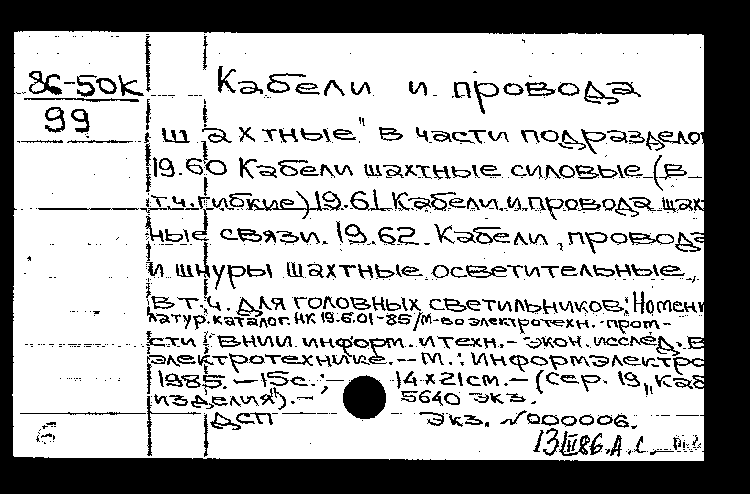 86-50К
99
Кабели и провода
шахтные" в части подраздело
19.60 Кабели шахтные силовые (в
т.ч. гибкие) 19.61 Кабели и провода шах
ные связи. 19.62. Кабели, провода
и шнуры шахтные осветительные,
в т.ч. для головных светильников: Номен
латур. каталог. НК 19.6.01-85/М-во электротехн. пром-
сти ВНИИ информ. и техн.-экон. исслед. в
электротехнике.--М.: Информэлектро
1985.-15с.; 14х21см.-(Сер. 19 „Каб
изделия").- 5640 экз.
ДСП Экз. №000006.
6 13/III86. А.С.